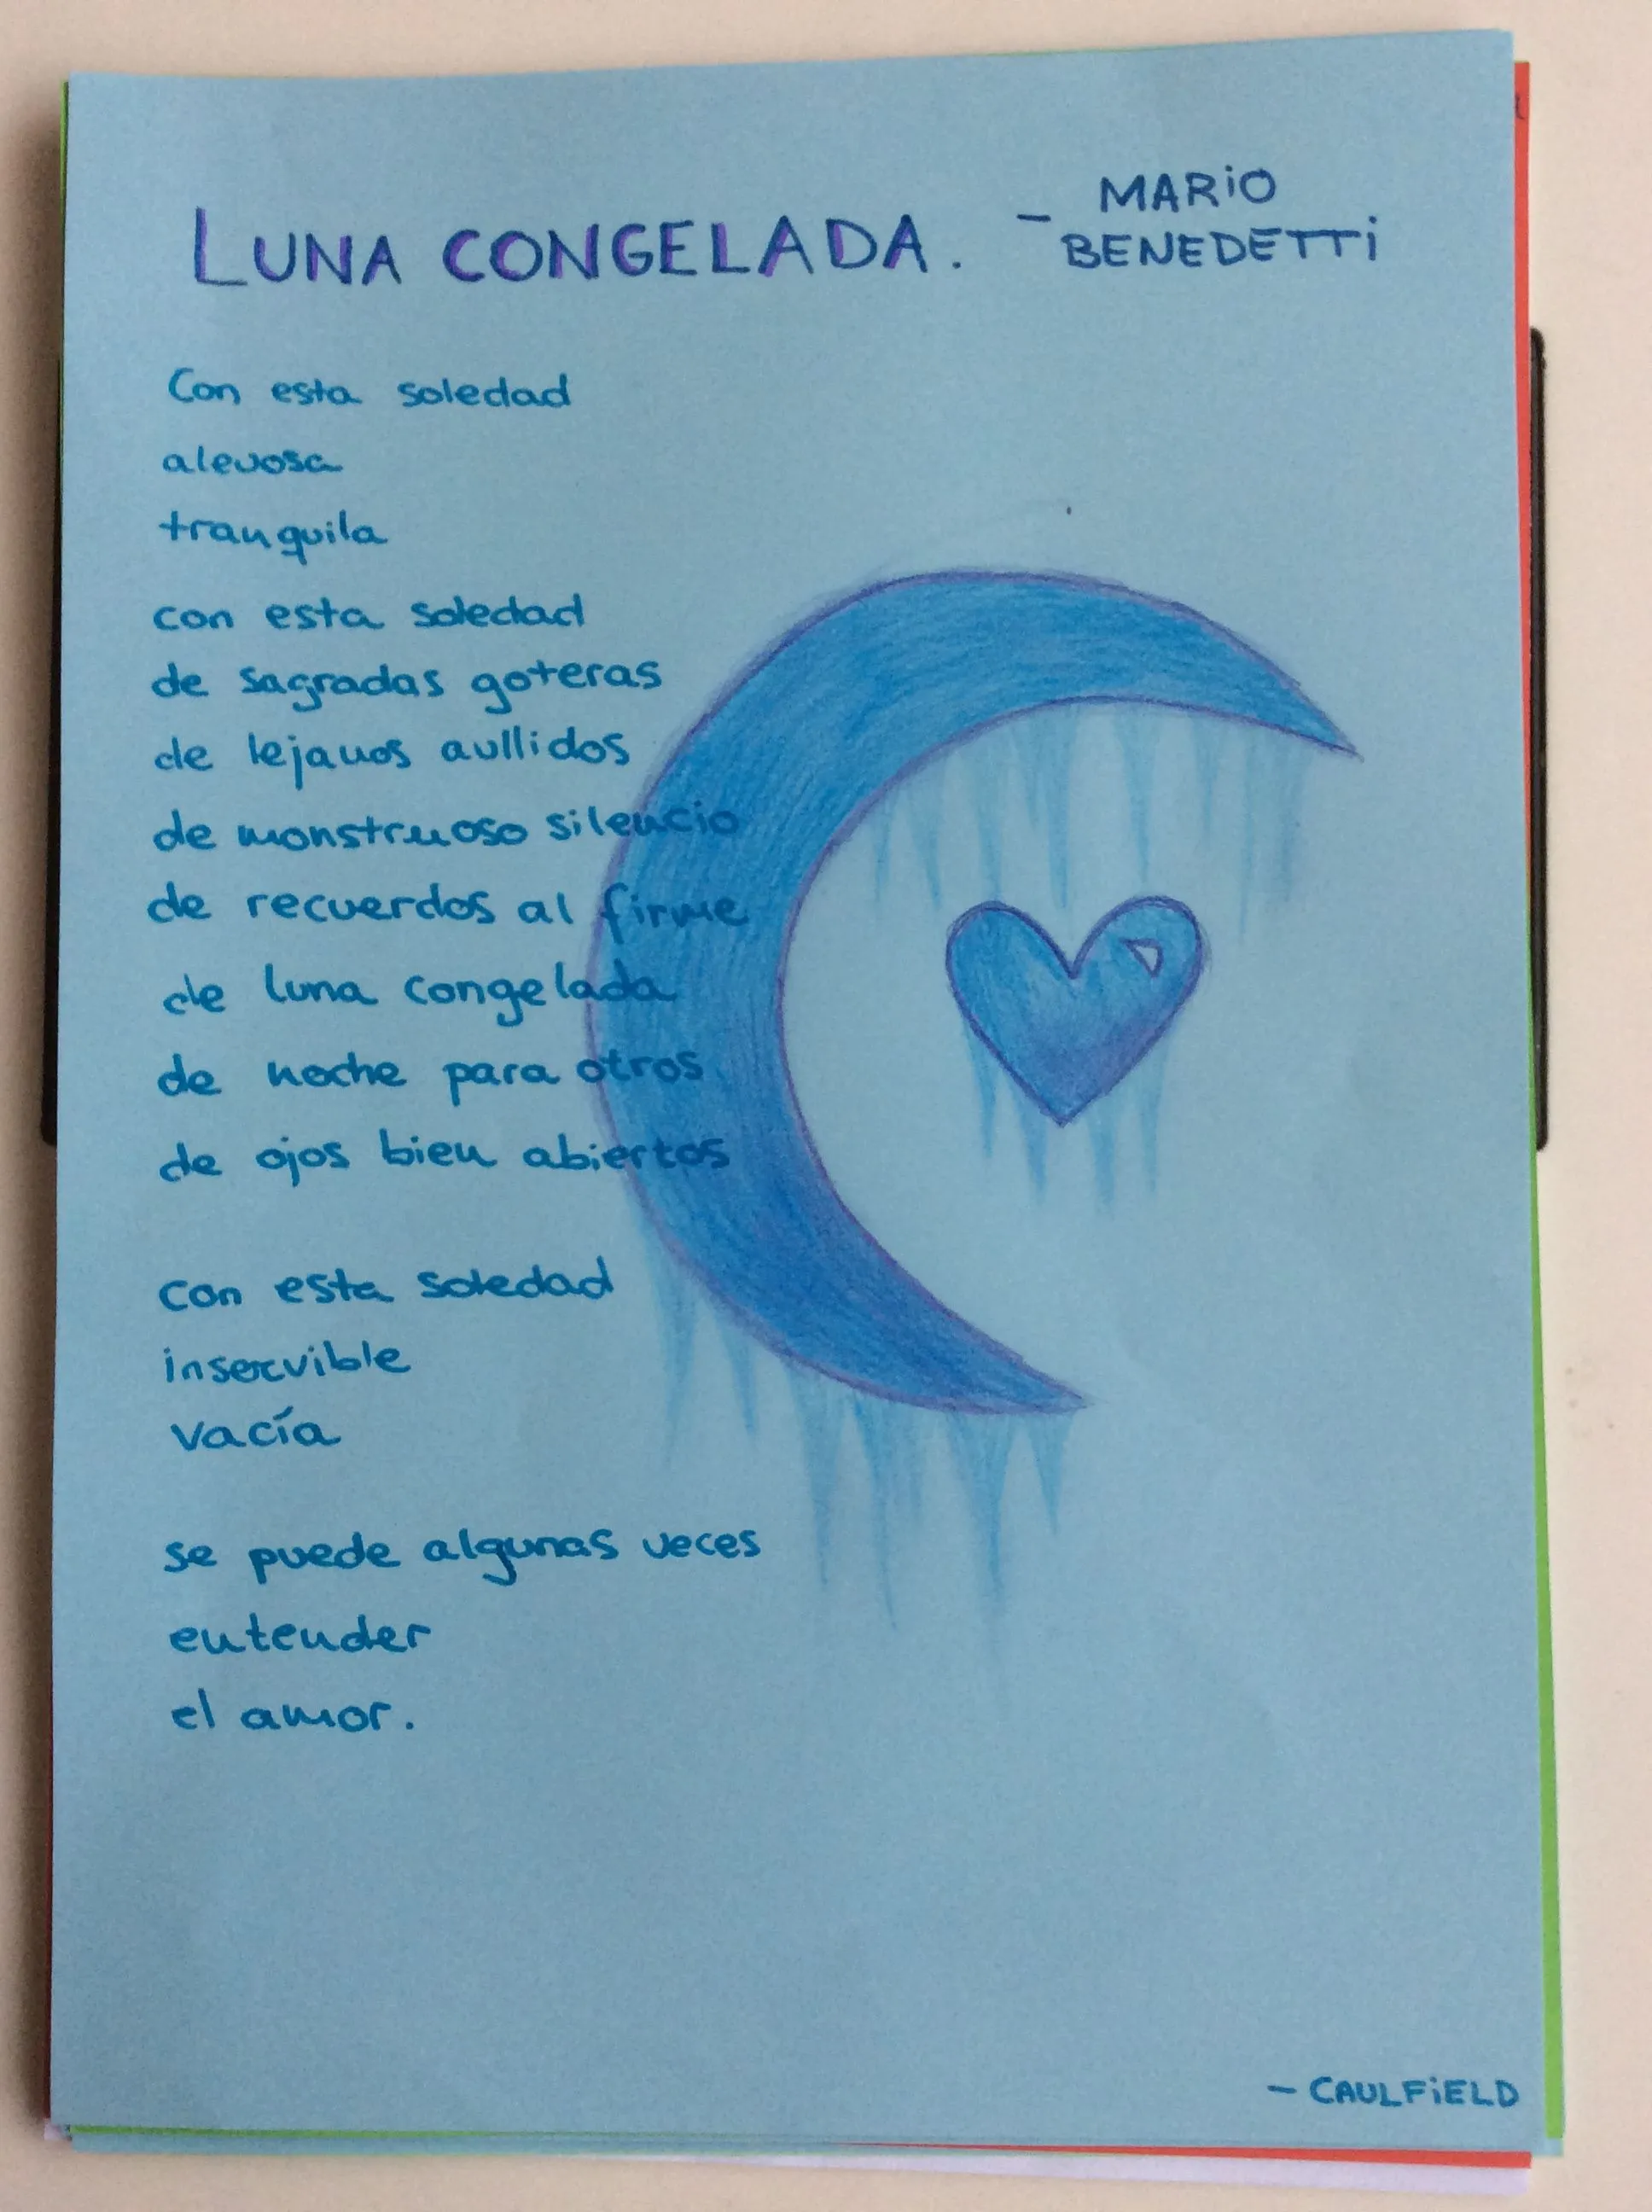 LUNA CONGELADA. - MARiO
BENEDETTi
Con esta soledad
alevosa
tranquila
con esta soledad
de sagradas goteras
de lejanos aullidos
de monstruoso silencio
de recuerdos al firme
de luna congelada
de noche para otros
de ojos bien abiertos
con esta soledad
inservible
vacía
se puede algunas veces
entender
el amor.
- CAULFiELD